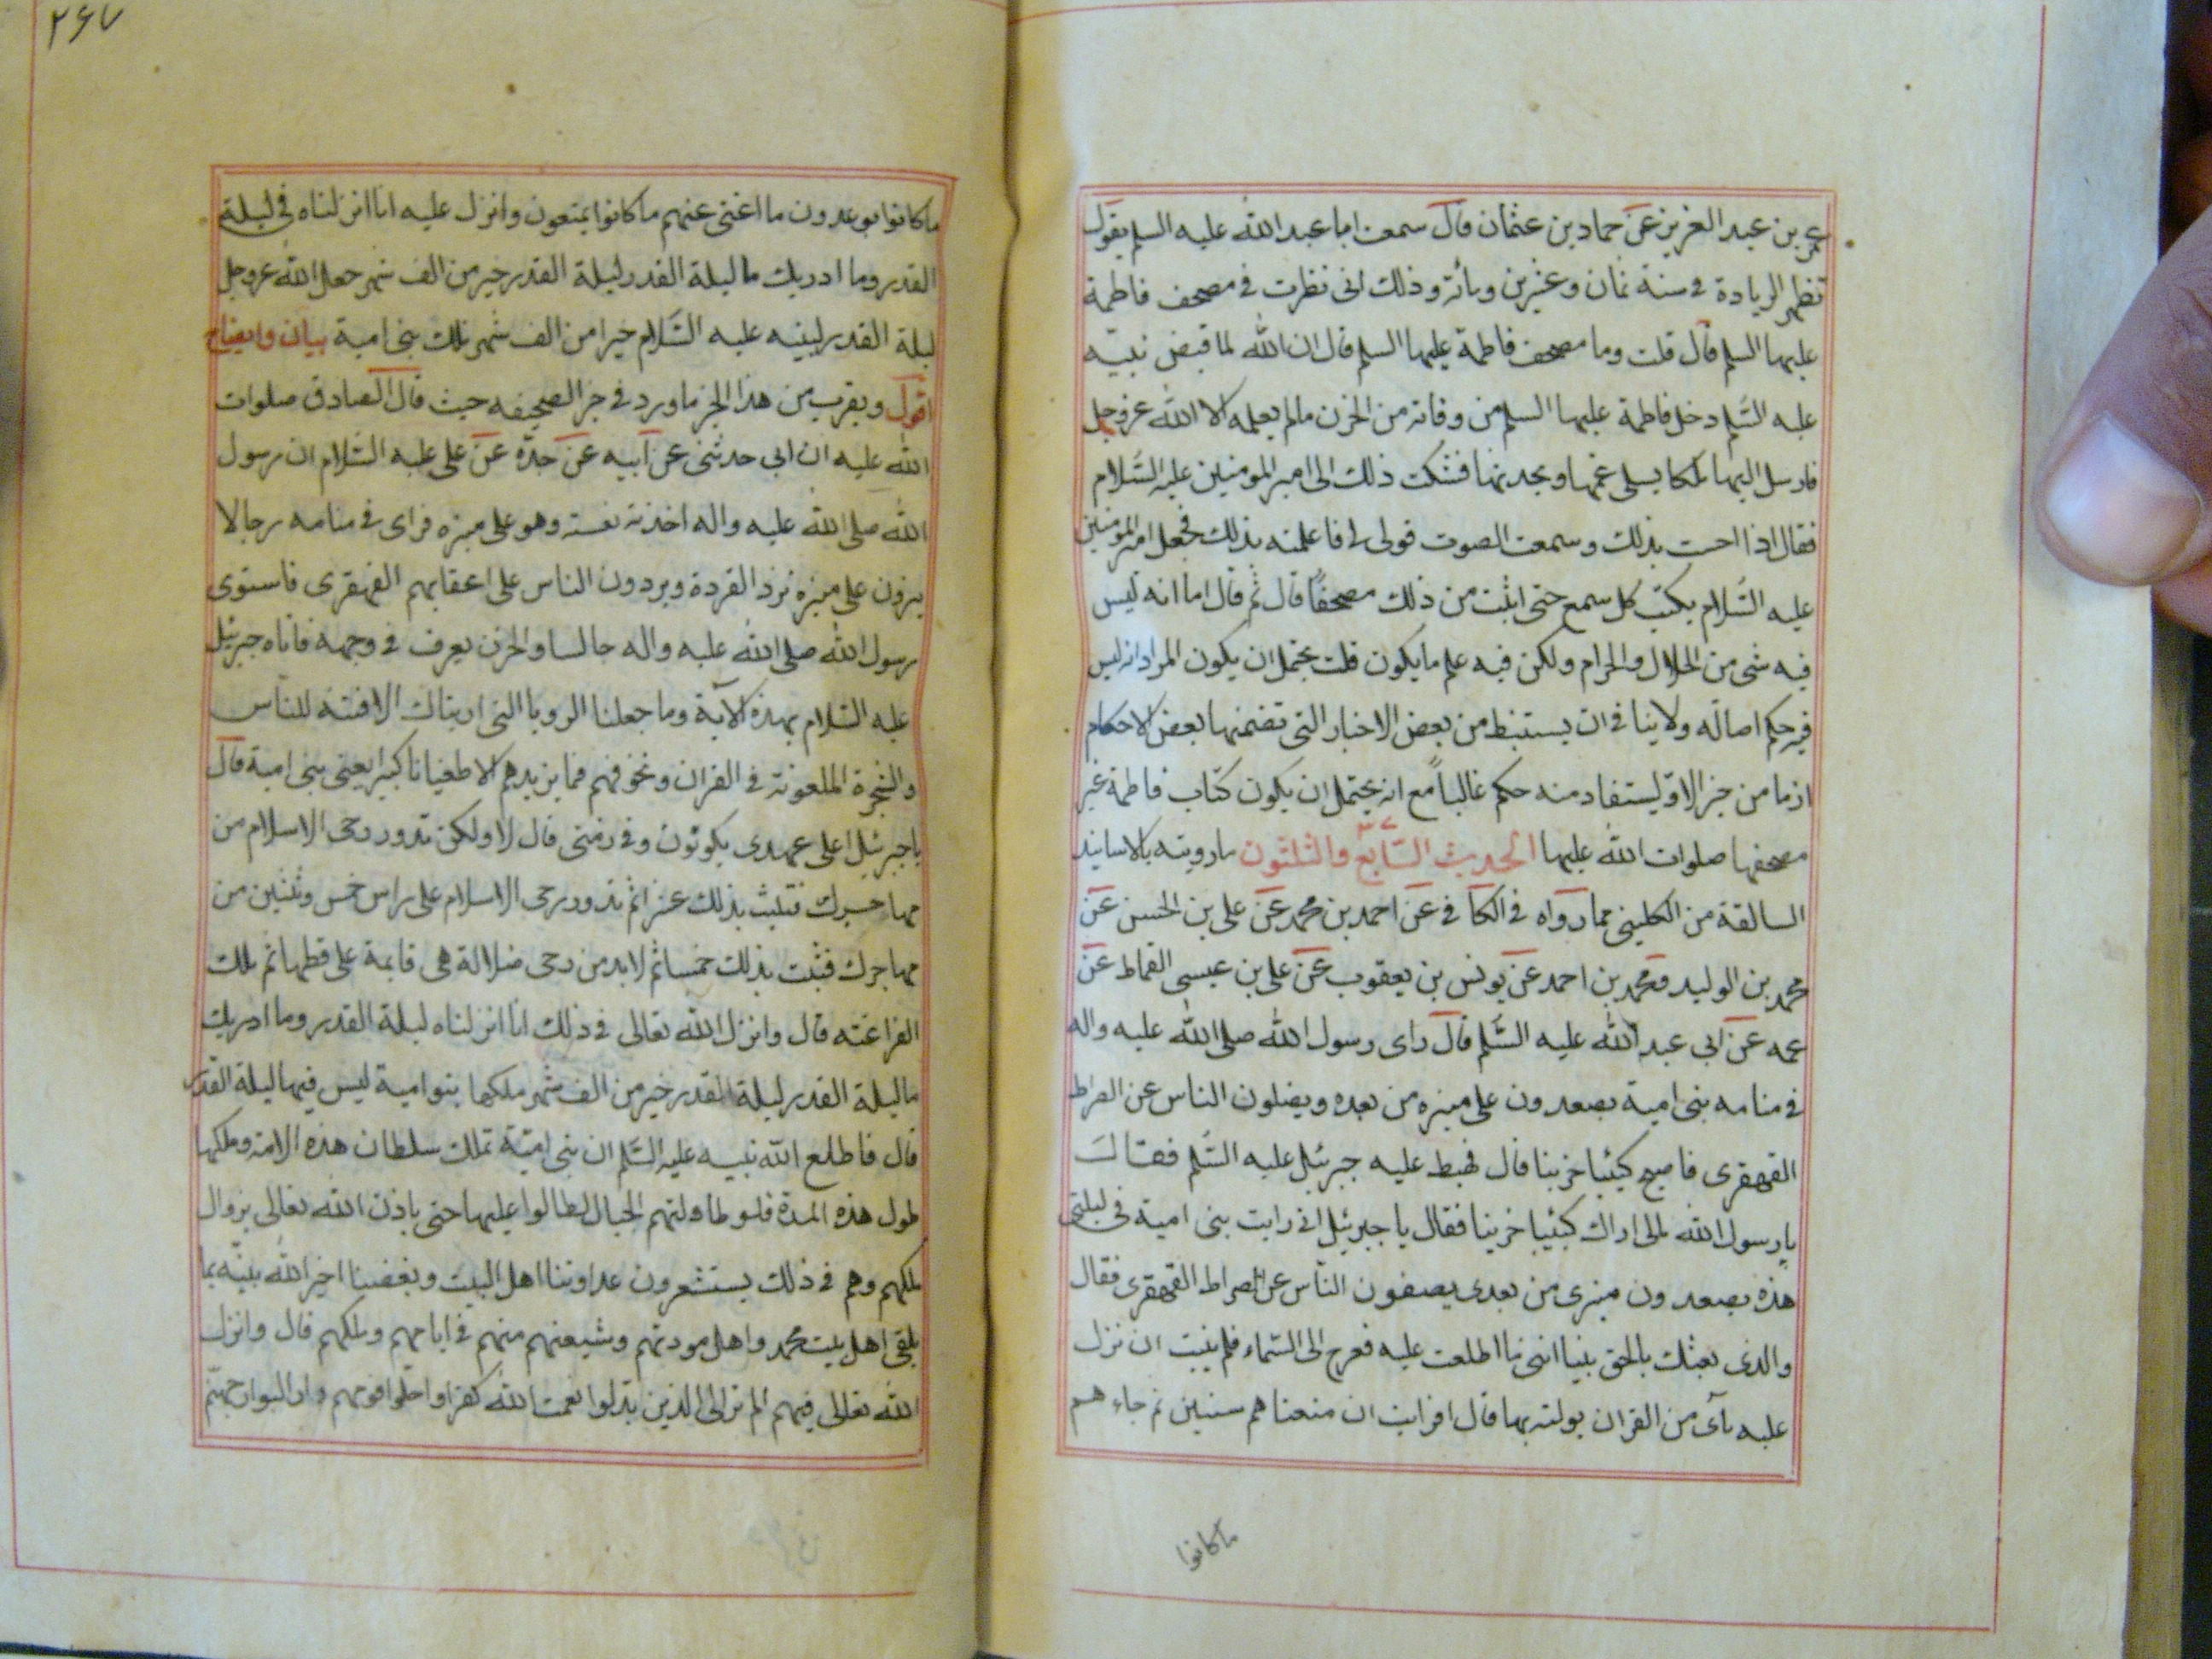 عمر بن عبد العزيز عن حماد بن عثمان قال سمعت ابا عبد الله عليه السلم يقول
تظهر الزيادة في سنة ثمان وعشرين ومائة وذلك انى نظرت في مصحف فاطمة
عليها السلم قال قلت وما مصحف فاطمة عليها السلم قال ان الله لما قبض نبيه
عليه السلم دخل فاطمة عليها السلم من وفاته من الحزن مالم يعلمه الا الله عز وجل
فارسل اليها ملكا يسلى غمها ويحدثها فشكت ذلك الى امير المومنين عليه السلام
فقال اذا احست بذلك وسمعت الصوت قولى لى فاعلمته بذلك فجعل امير المومنين
عليه السلام يكتب كل سمع حتى اثبت من ذلك مصحفا قال ثم قال اما انه ليس
فيه شى من الحلال والحرام ولكن فيه علم ما يكون قلت يحتمل ان يكون المراد انه ليس
فيه حكم اصالة ولا ينافى ان يستنبط من بعض الاخبار التى تضمنها بعض الاحكام
اذ ما من خبر الا ويستفاد منه حكم غالبا مع انه يحتمل ان يكون كتاب فاطمة غير
مصحفها صلوات الله عليها الحديث السابع والثلثون ما رويته بالاسانيد
٣٧
السالفة من الكلينى مما رواه في الكافى عن احمد بن محمد عن على بن الحسن عن
محمد بن الوليد ومحمد بن احمد عن يونس بن يعقوب عن على بن عيسى القماط عن
عمه عن ابى عبد الله عليه السلم قال راى رسول الله صلى الله عليه واله
في منامه بنى امية يصعدون على منبره من بعده ويضلون الناس عن الصراط
القهقرى فاصبح كئيبا حزينا قال فهبط عليه جبرئيل عليه السلم فقال
يا رسول الله مالى اراك كئيبا حزينا فقال يا جبرئيل انى رايت بنى امية في ليلتى
هذه يصعدون منبرى من بعدى يضلون الناس عن الصراط القهقرى فقال
والذى بعثك بالحق نبيا اننى ما اطلعت عليه فعرج الى السماء فلم يلبث ان نزل
عليه بآى من القران يونسه بها قال افرايت ان متعناهم سنين ثم جاءهم
ما كانوا
٢٦٧
ما كانوا يوعدون ما اغنى عنهم ما كانوا يمتعون وانزل عليه انا انزلناه في ليلة
القدر وما ادريك ما ليلة القدر ليلة القدر خير من الف شهر جعل الله عز وجل
ليلة القدر لنبيه عليه السلام خيرا من الف شهر ملك بنى امية بيان وايضاح
اقول ويقرب من هذا الخبر ما ورد في خبر الصحيفه حيث قال الصادق صلوات
الله عليه ان ابى حدثنى عن ابيه عن جده عن على عليه السلام ان رسول
الله صلى الله عليه واله اخذته نعسة وهو على منبره فراى في منامه رجالا
ينزون على منبره نزو القردة ويردون الناس على اعقابهم القهقرى فاستوى
رسول الله صلى الله عليه واله جالسا والحزن يعرف في وجهه فاتاه جبرئيل
عليه السلام بهذه الاية وما جعلنا الرويا التى اريناك الا فتنة للناس
والشجرة الملعونة في القران ونخوفهم فما يزيدهم الا طغيانا كبيرا يعنى بنى امية قال
يا جبرئيل اعلى عهدى يكونون وفي زمنى قال لا ولكن تدور رحى الاسلام من
مهاجرك فتلبث بذلك عشرا ثم تدور رحى الاسلام على راس خمس وثلثين من
مهاجرك فتلبث بذلك خمسا ثم لا بد من رحى ضلالة هى قايمة على قطبها ثم ملك
الفراعنه قال وانزل الله تعالى في ذلك انا انزلناه ليلة القدر وما ادريك
ما ليلة القدر ليلة القدر خير من الف شهر ملكها بنو امية ليس فيها ليلة القدر
قال فاطلع الله نبيه عليه السلم ان بنى امية تملك سلطان هذه الامة وملكها
طول هذه المدة فلو طاولتهم الجبال لطالوا عليها حتى ياذن الله تعالى بزوال
ملكهم وهم في ذلك يستشعرون عداوتنا اهل البيت وبغضنا اخبر الله نبيه بما
يلقى اهل بيت محمد واهل مودتهم وشيعتهم منهم في ايامهم وملكهم قال وانزل
الله تعالى فيهم الم تر الى الذين بدلوا نعمت الله كفرا واحلوا قومهم دار البوار جهنم